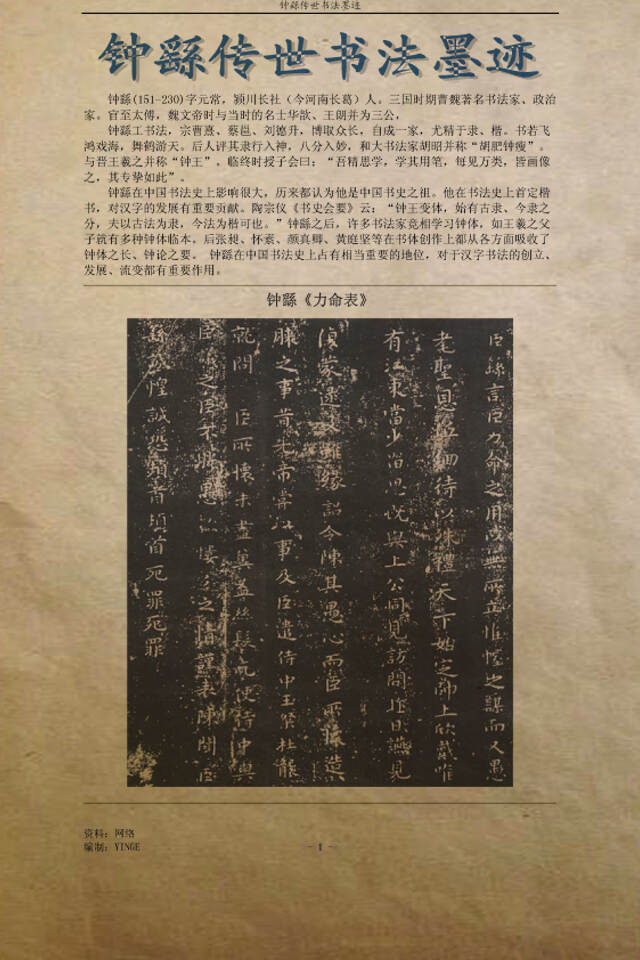 钟繇传世书法墨迹
钟繇传世书法墨迹
钟繇(151-230)字元常，颍川长社（今河南长葛）人。三国时期曹魏著名书法家、政治
家。官至太傅，魏文帝时与当时的名士华歆、王朗并为三公，
钟繇工书法，宗曹熹、蔡邕、刘德升，博取众长，自成一家，尤精于隶、楷。书若飞
鸿戏海，舞鹤游天。后人评其隶行入神，八分入妙，和大书法家胡昭并称“胡肥钟瘦”。
与晋王羲之并称“钟王”。临终时授子会曰；“吾精思学，学其用笔，每见万类，皆画像
之，其专挚如此”。
钟繇在中国书法史上影响很大，历来都认为他是中国书史之祖。他在书法史上首定楷
书，对汉字的发展有重要贡献。陶宗仪《书史会要》云：“钟王变体，始有古隶、今隶之
分，夫以古法为隶，今法为楷可也。”钟繇之后，许多书法家竞相学习钟体，如王羲之父
子就有多种钟体临本。后张昶、怀素、颜真卿、黄庭坚等在书体创作上都从各方面吸收了
钟体之长、钟论之要。 钟繇在中国书法史上占有相当重要的地位，对于汉字书法的创立、
发展、流变都有重要作用。
钟繇《力命表》
臣繇言臣力命之用 無所立惟幄之謀而又愚
老聖恩 待以殊禮天下始定帥上欣戴唯
有江東當少留思既與上公同見訪問昨日
蒙逮 緣詔令陳其愚心而臣所懷造
膝之事昔先帝 以事及臣遣侍中王粲杜襲
就問臣所懷未盡 益絲髮乞使侍中與
臣 之臣不勝 之情謹表陳聞臣
繇 惶誠恐頓首頓首死罪死罪
资料：网络
编制：YINGE
- 1 -